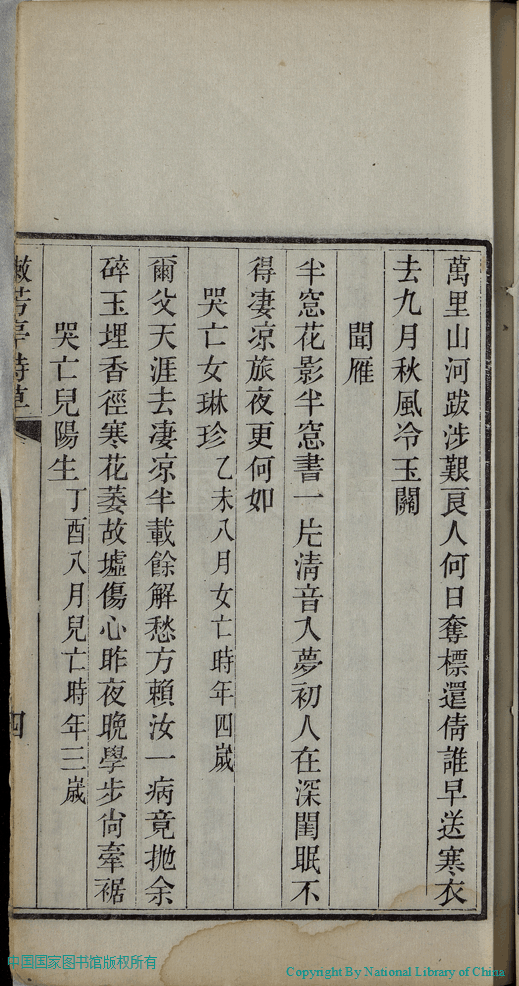 萬里山河跋涉艱良人何日奪標還倩誰早送寒衣
去九月秋風冷玉關
聞雁
半窓花影半窓書一片清音入夢初人在深閨眠不
得凄凉旅夜更何如
哭亡女琳珍乙未八月女亡時年四嵗
爾父天涯去凄凉半載餘解愁方賴汝一病竟抛余
碎玉埋香徑寒花萎故墟傷心昨夜晚學步尙牽裾
哭亡兒陽生丁酉八月兒亡時年三嵗
漱芳亭詩草
四
中国国家图书馆版权所有
Copyright By National Library of China